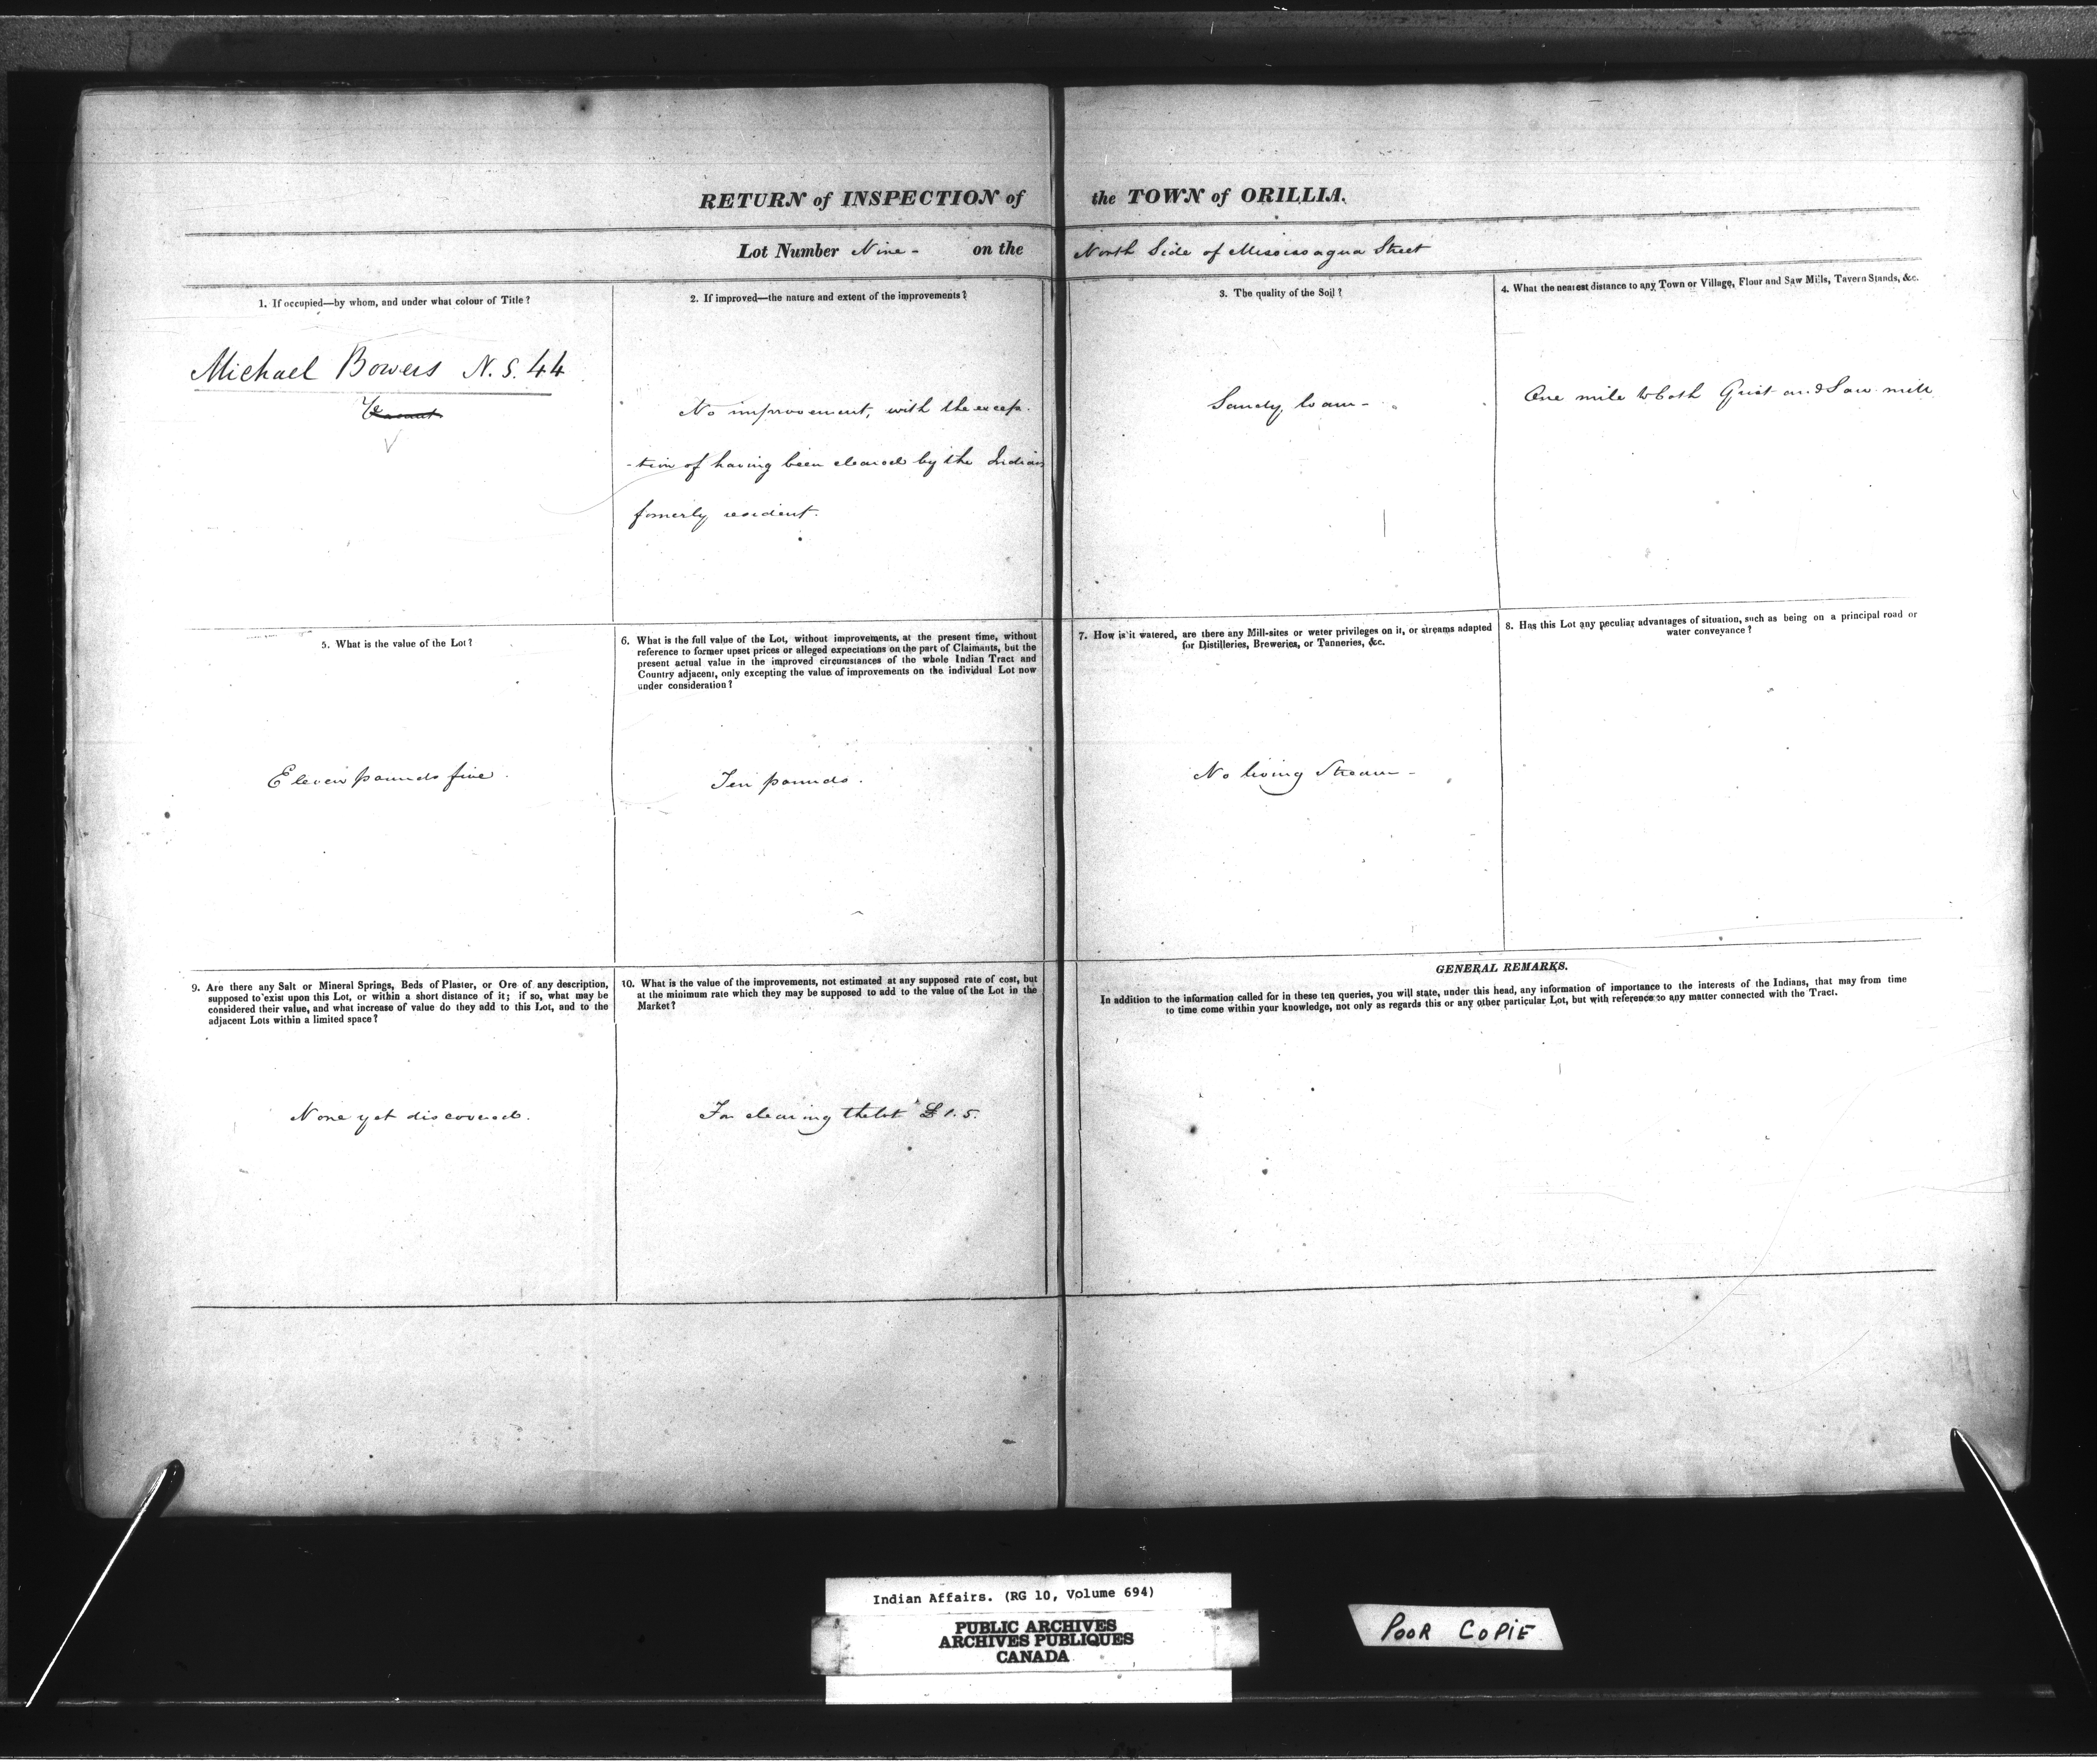 RETURN of INSPECTION of the TOWN of ORILLIA.
Lot Number Nine - on the North Side of Mississagua Street
1. If occupied—by whom, and under what colour of Title?
Michael Bowers N. S. 44
Vacant
2. If improved—the nature and extent of the improvements?
No improvement, with the excep-
-tion of having been cleared by the Indians
formerly resident.
3. The quality of the Soil?
Sandy loam -
4. What the nearest distance to any Town or Village, Flour and Saw Mills, Tavern Stands, &c.
One mile to both Grist and Saw mill
5. What is the value of the Lot?
Eleven pounds five.
6. What is the full value of the Lot, without improvements, at the present time, without
reference to former upset prices or alleged expectations on the part of Claimants, but the
present actual value in the improved circumstances of the whole Indian Tract and
Country adjacent, only excepting the value of improvements on the individual Lot now
under consideration?
Ten pounds.
7. How is it watered, are there any Mill-sites or water privileges on it, or streams adapted
for Distilleries, Breweries, or Tanneries, &c.
No living Stream -
8. Has this Lot any peculiar advantages of situation, such as being on a principal road or
water conveyance?
9. Are there any Salt or Mineral Springs, Beds of Plaster, or Ore of any description,
supposed to exist upon this Lot, or within a short distance of it; if so, what may be
considered their value, and what increase of value do they add to this Lot, and to the
adjacent Lots within a limited space?
None yet discovered.
10. What is the value of the improvements, not estimated at any supposed rate of cost, but
at the minimum rate which they may be supposed to add to the value of the Lot in the
Market?
For clearing the lot £1.5.
GENERAL REMARKS.
In addition to the information called for in these ten queries, you will state, under this head, any information of importance to the interests of the Indians, that may from time
to time come within your knowledge, not only as regards this or any other particular Lot, but with reference to any matter connected with the Tract.
Indian Affairs. (RG 10, Volume 694)
PUBLIC ARCHIVES
ARCHIVES PUBLIQUES
CANADA
POOR COPIE